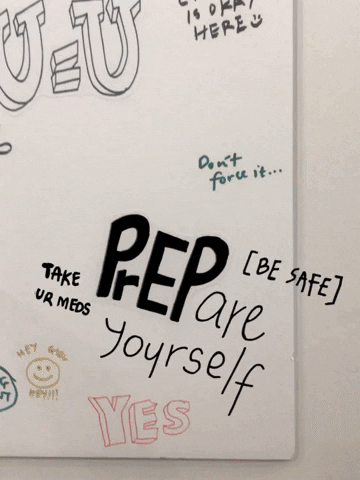 U=U
IS OKAY
HERE
Don't
force it...
PrEPare
[BE SAFE]
TAKE
UR MEDS
yourself
HEY
HEY!!!
YES